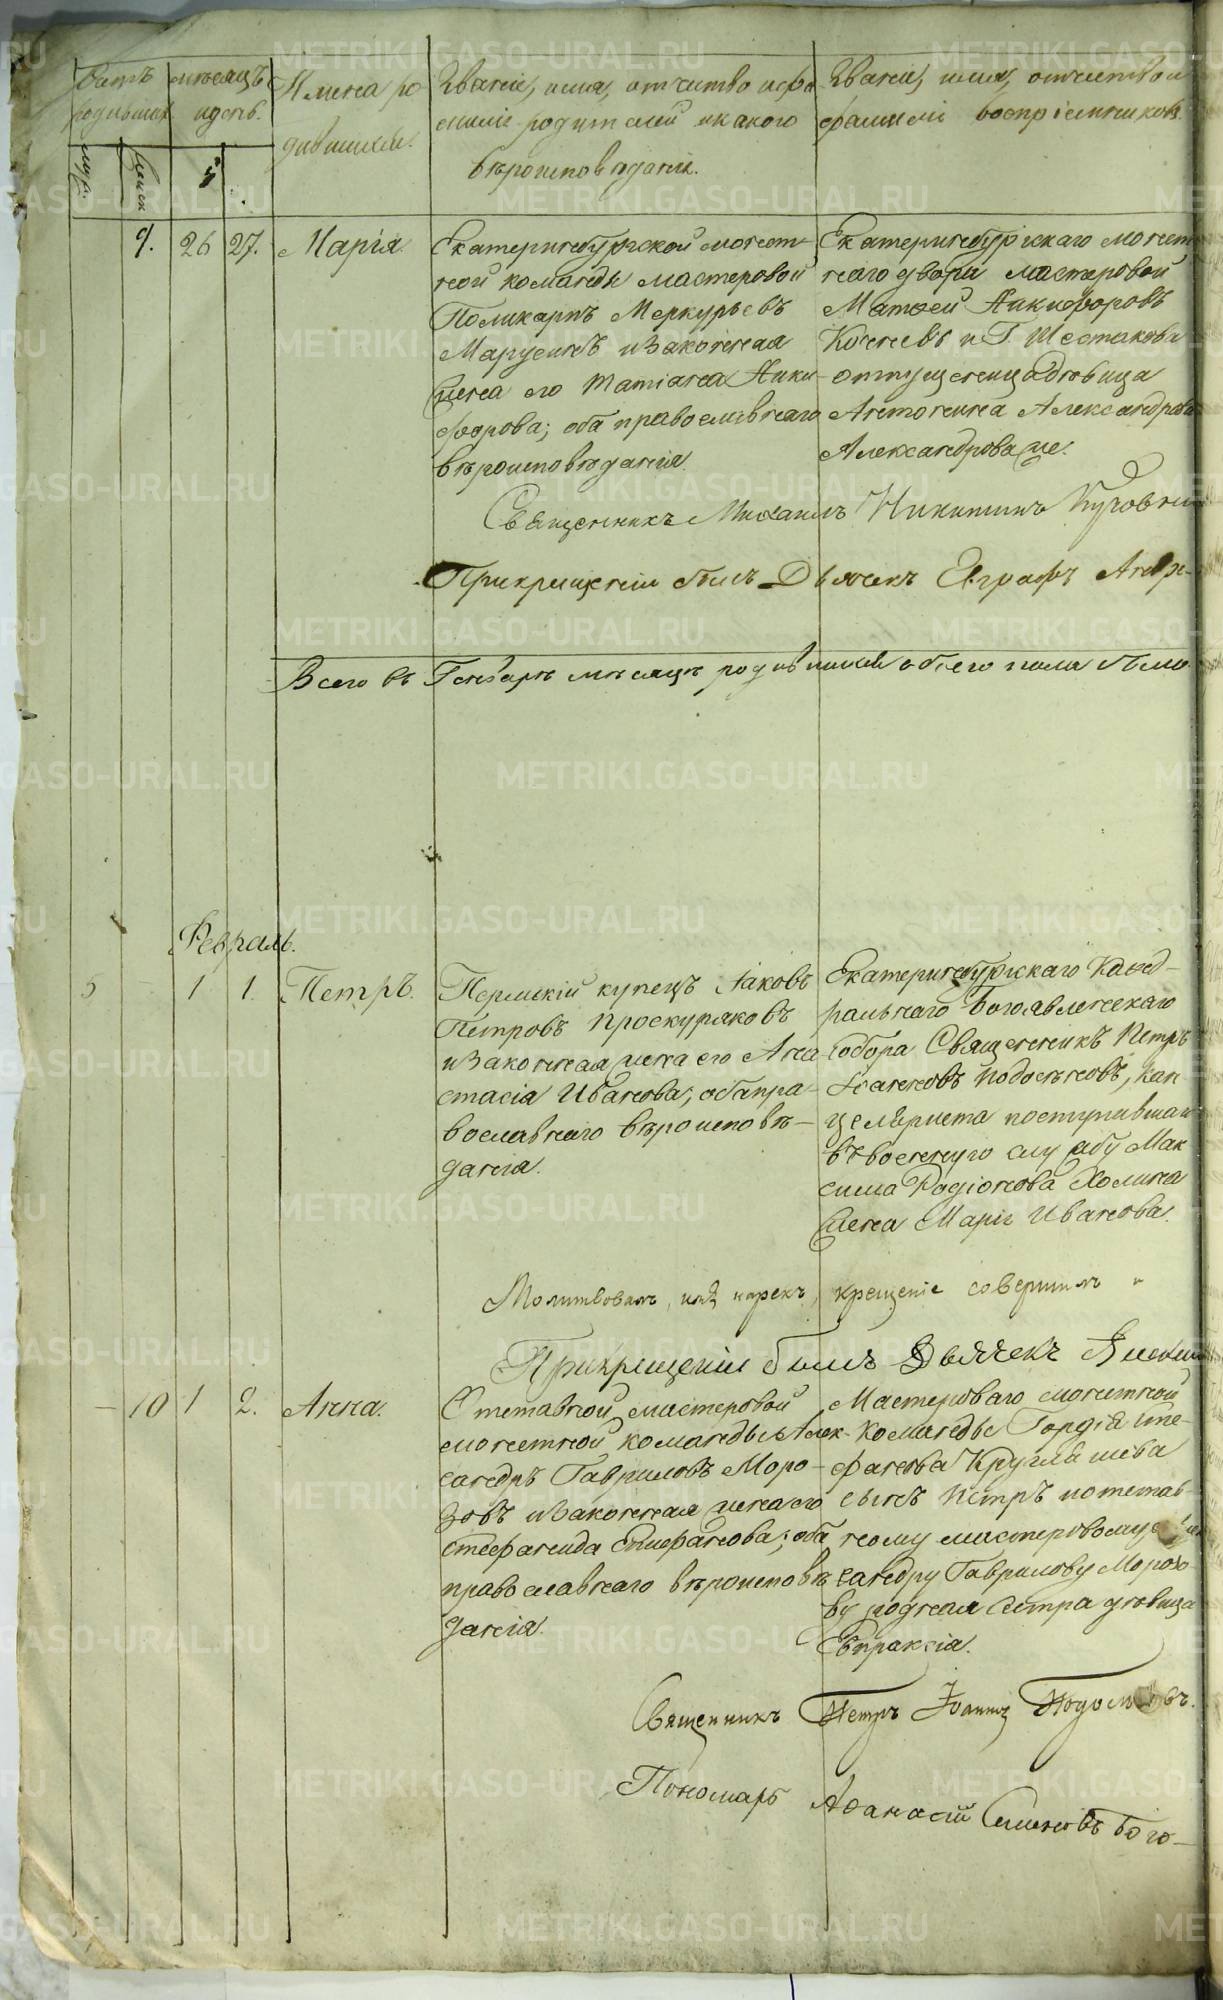 Счетъ родившихся
месяцъ и день.
Имена родившихся.
Званіе, имя, отчество и фамилія родителей и какого вѣроисповѣданія.
Званіе, имя, отчество и фамилія воспріемниковъ.
муж:
женск
9. 26 27. Марія
Екатеринбургской монет-
ной команды мастеровой
Поликарпъ Меркурьевъ
и законная
жена его Татіана Ники-
форова; оба православнаго
вѣроисповѣданія.
Екатеринбургскаго монет
наго двора мастеровой
Матвей Никифоровъ
и Г. Шестакова
отпущенница дѣвица
Антонина Александрова
Александрова же.
Священникъ Михаилъ Никитинъ
При крещеніи былъ Дьячекъ Евграфъ Андре-
Всего въ Генварѣ месяцѣ родившихся обоего пола было
Февраль.
5 1 1. Петръ.
Пермскій купецъ Іаковъ
Петровъ Проскуряковъ
и законная жена его Ана
стасія Иванова; оба пра-
вославнаго вѣроисповѣ-
данія.
Екатеринбургскаго Каѳед-
ральнаго Богоявленскаго
собора Священникъ Петръ
Іоанновъ Подосеновъ, кан-
целяриста поступившаго
въ военную службу Мак
сима Родіонова Холина
жена Марія Иванова.
Молитвовалъ, имя нарекъ, крещеніе совершилъ и
При крещеніи былъ Дьячекъ
10 1 2. Анна.
Отставной мастеровой
монетной команды Алек-
сандръ Гавриловъ Моро-
зовъ и законная жена его
Стефанида Епифанова; оба
православнаго вѣроисповѣ
данія.
Мастероваго монетной
команды Гордія Сте-
фанова Кругляшева
сынъ Петръ и отстав-
ному мастеровому Алек
сандру Гаврилову Морозо-
ву родная сестра дѣвица
Евпраксія.
Священникъ Петръ Іоанновъ Подосеновъ.
Пономарь Аѳанасій Семеновъ Бого-
METRIKI.GASO-URAL.RU